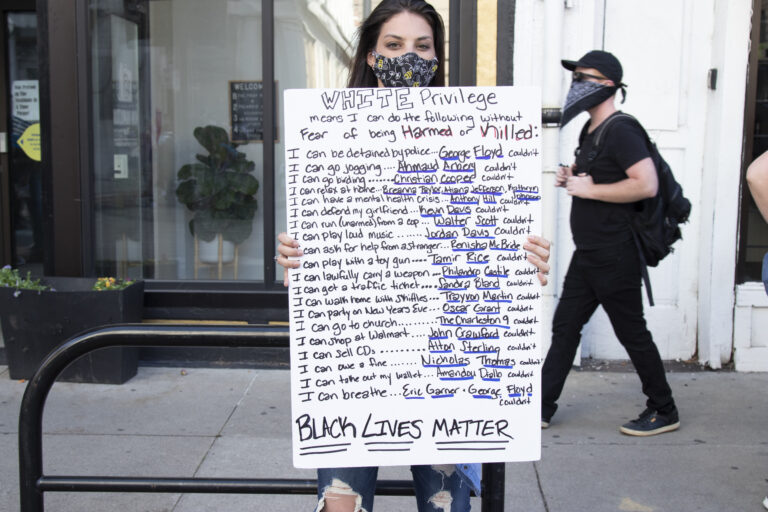 WHITE Privilege
means I can do the following without
Fear of being Harmed or Killed:
I can be detained by police... George Floyd couldn't
I can go jogging .... Ahmaud Arbery couldn't
I can go birding ....... Christian Cooper couldn't
I can relax at home ... Breanna Taylor, Atiana Jefferson, Kathryn Johnson couldn't
I can have a mental health crisis... Anthony Hill couldn't
I can defend my girlfriend... Kevin Davis couldn't
I can run (unarmed) from a cop... Walter Scott couldn't
I can play loud music ...... Jordan Davis couldn't
I can ask for help from a stranger... Renisha McBride couldn't
I can play with a toy gun .... Tamir Rice couldn't
I can lawfully carry a weapon ... Philando Castile couldn't
I can get a traffic ticket ... Sandra Bland couldn't
I can walk home with Skittles ... Trayvon Martin couldn't
I can party on New Years Eve ... Oscar Grant couldn't
I can go to church ......... The Charleston 9 couldn't
I can shop at Walmart .... John Crawford couldn't
I can sell CDs .......... Alton Sterling couldn't
I can owe a fine ....... Nicholas Thomas couldn't
I can take out my wallet ... Amandou Diallo couldn't
I can breathe ... Eric Garner + George Floyd couldn't
BLACK LIVES MATTER
WELCOME